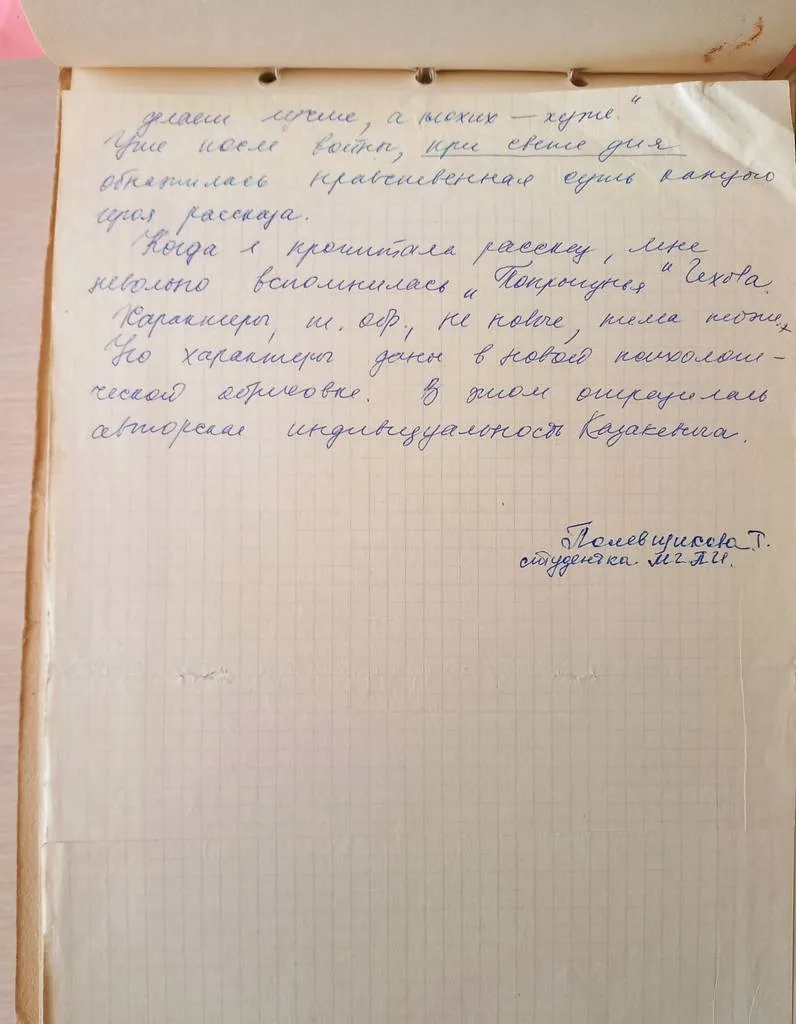 делает лучше, а плохих — хуже."
Уже после войны, при свете дня
обнажилась нравственная суть каждого
героя рассказа.
Когда я прочитала рассказ, мне
невольно вспомнилась „Попрыгунья" Чехова.
Характеры, т. обр., не новые, тема тоже.
Но характеры даны в новой психологи-
ческой обрисовке. В этом определилась
авторская индивидуальность Казакевича.
Полевщикова Т.
студентка МГПИ.